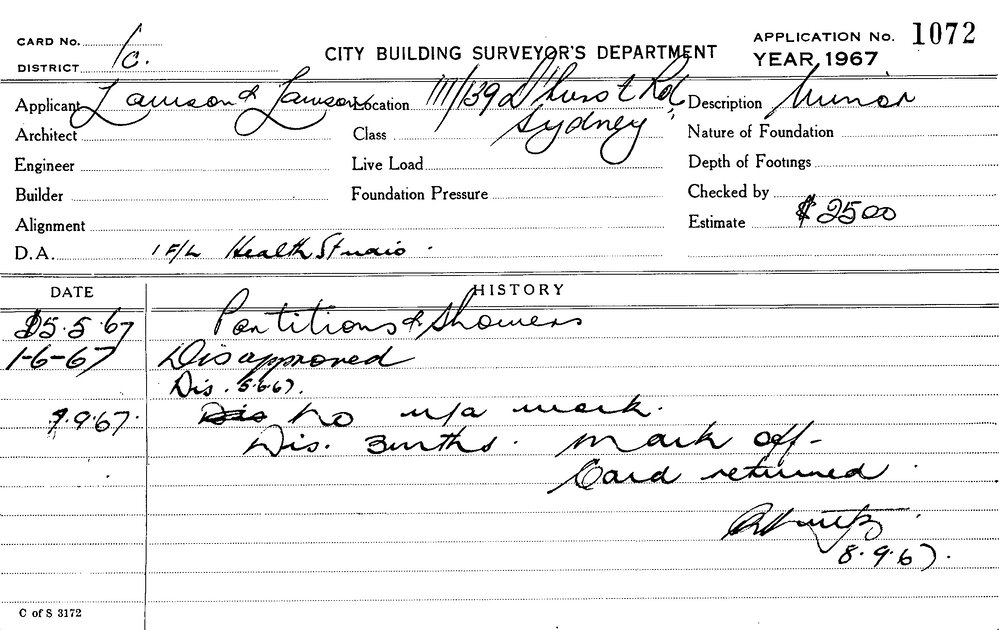 CARD No.
DISTRICT 1c.
CITY BUILDING SURVEYOR'S DEPARTMENT
APPLICATION No. 1072
YEAR 1967
Applicant Lawson & Lawson Location 111/139 D'hurst Rd, Description Minor
Sydney
Architect Class Nature of Foundation
Engineer Live Load Depth of Footings
Builder Foundation Pressure Checked by
Alignment Estimate $2500
D.A. 1 F/L Health Studio.
DATE HISTORY
25.5.67 Partitions & Showers
1-6-67 Disapproved
Dis. 5.6.67.
7.9.67. Dis no u/a work.
Dis. 3mths. Mark off-
Card returned
8.9.67.
C of S 3172